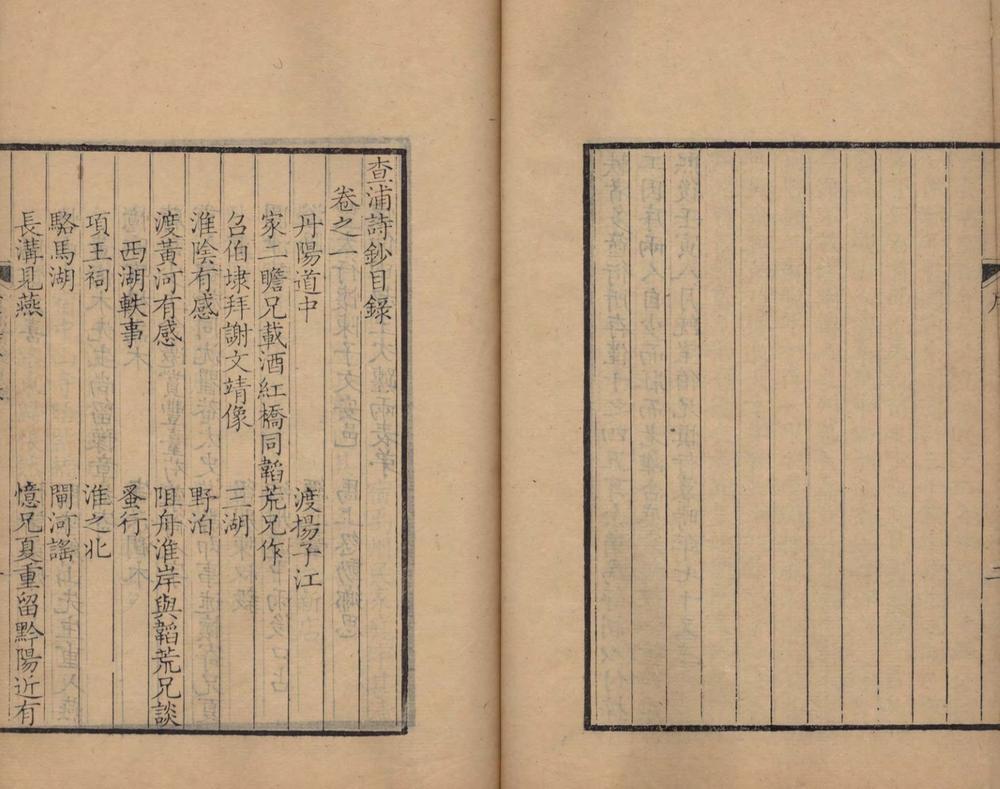 查浦詩鈔目錄
卷之一
丹陽道中 渡揚子江
家二瞻兄載酒紅橋同韜荒兄作
召伯埭拜謝文靖像 三湖
淮陰有感 野泊
渡黃河有感 阻舟淮岸與韜荒兄談
西湖軼事 蚤行
項王祠 淮之北
駱馬湖 閘河謠
長溝見燕 憶兄夏重留黔陽近有